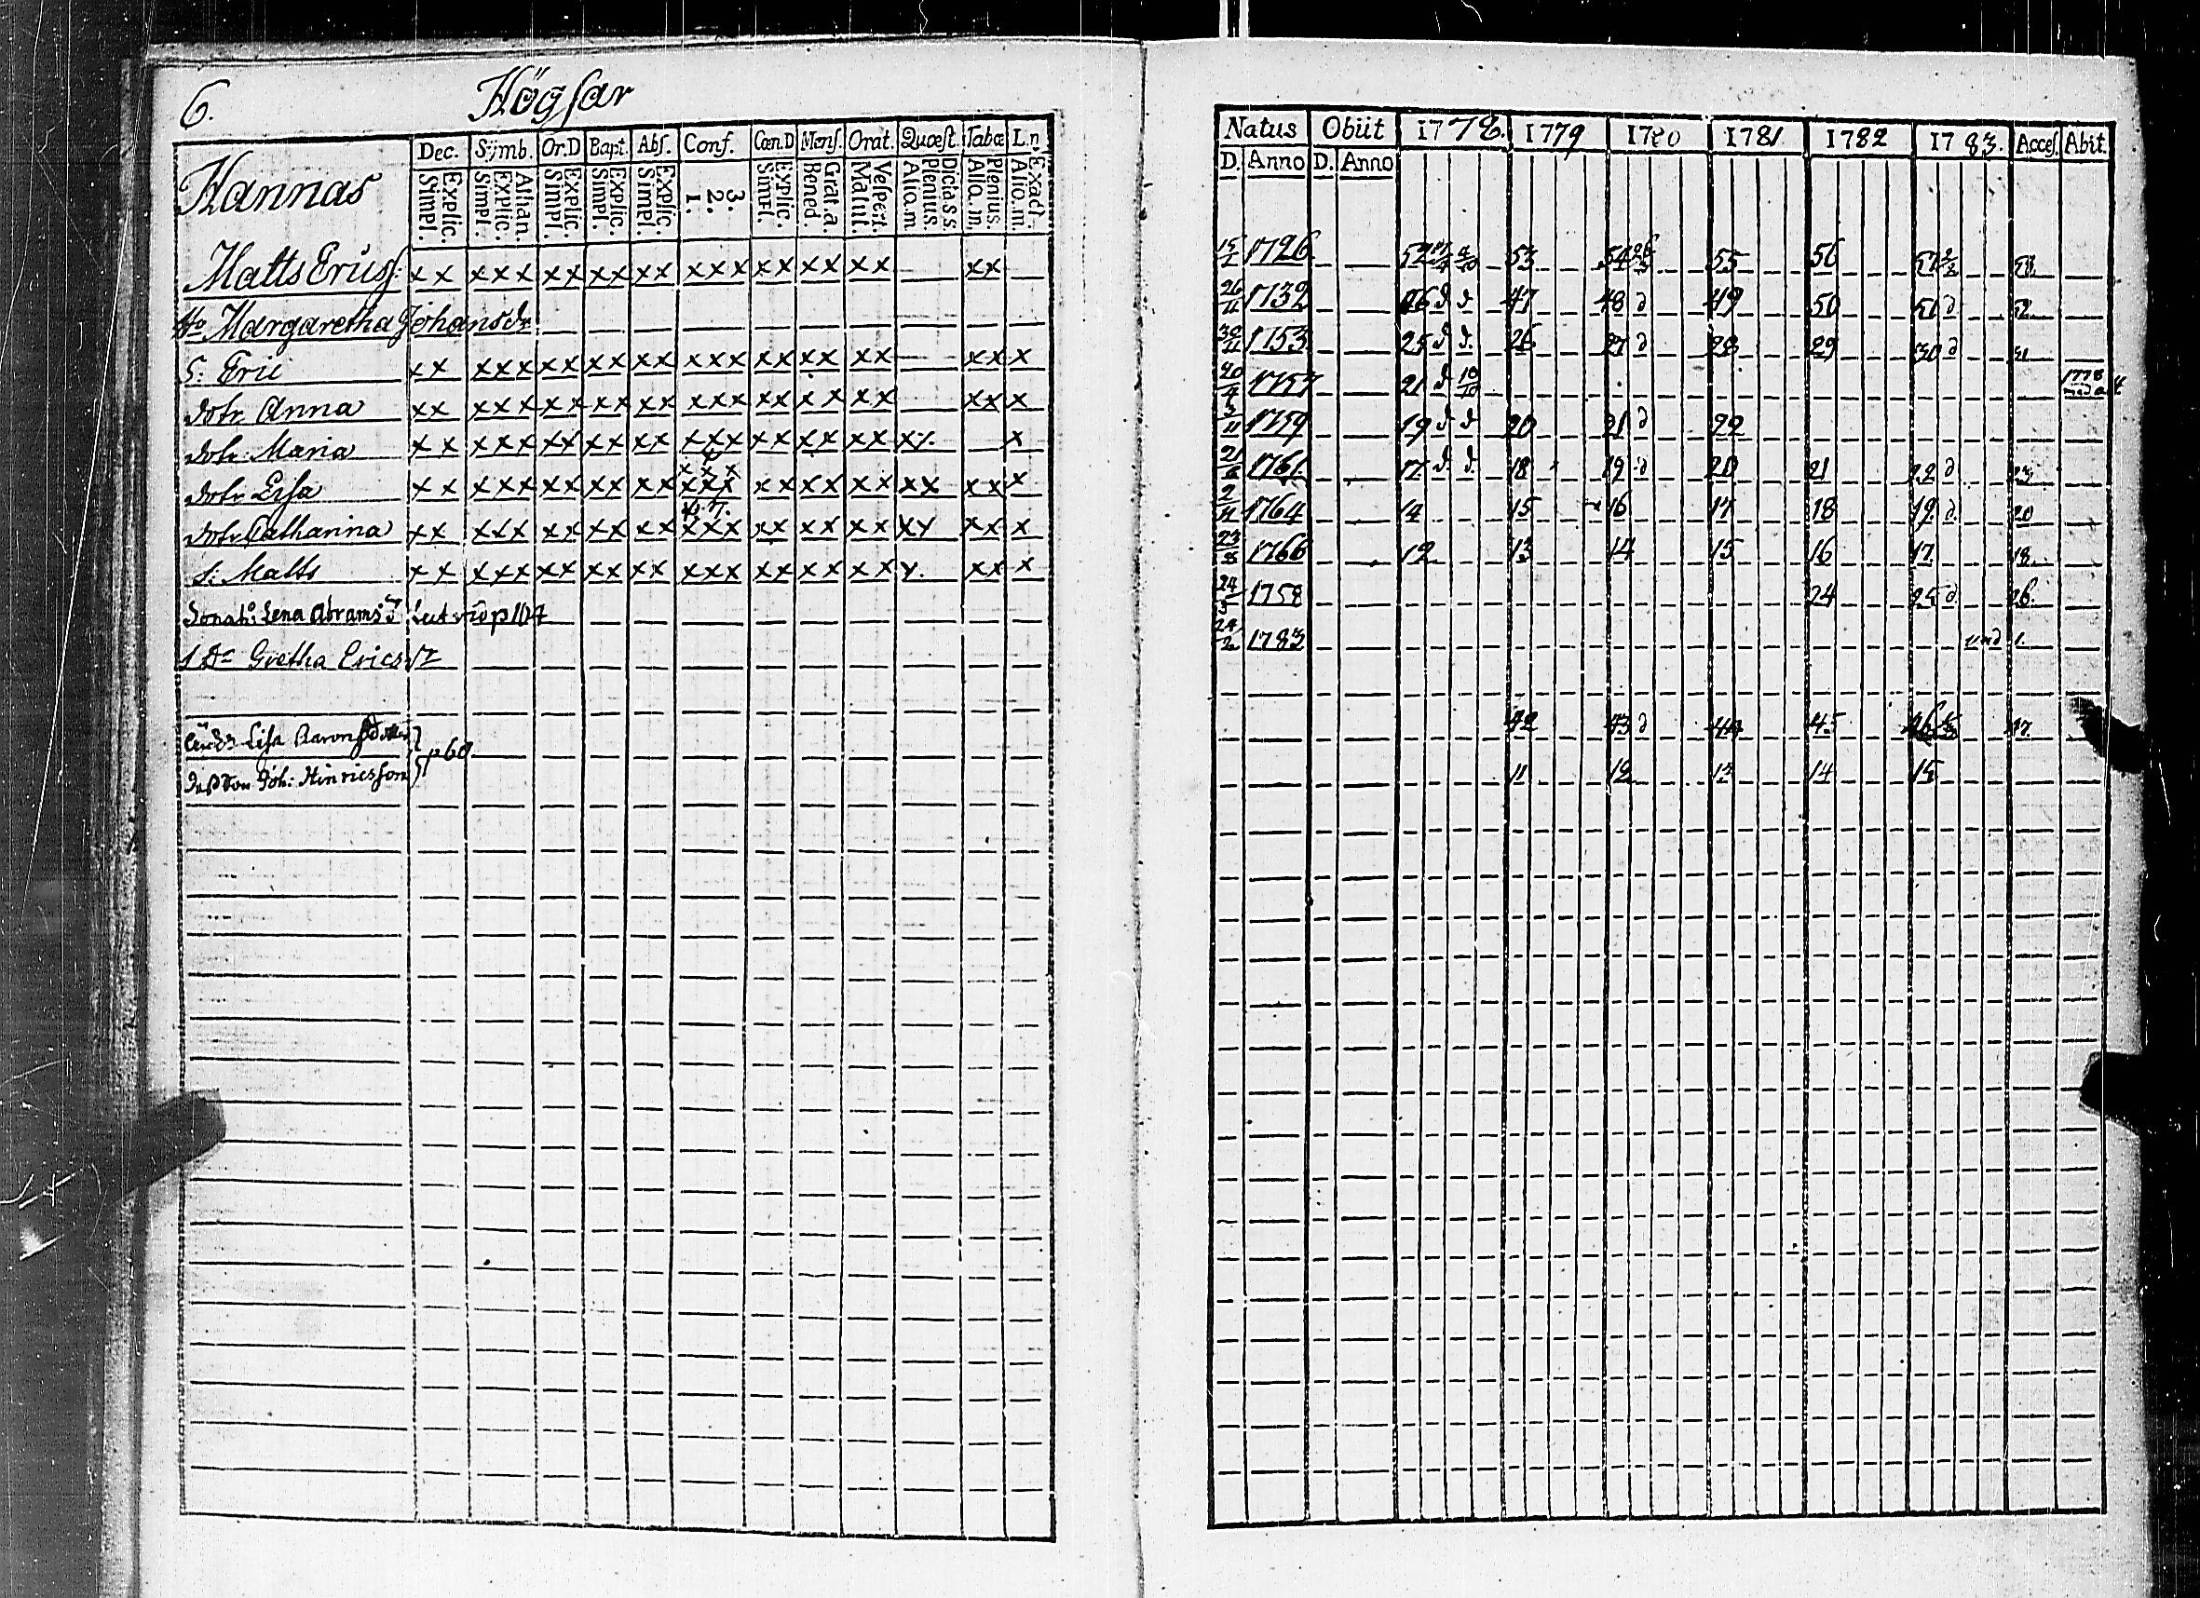 6. Högsar
Dec. Sÿmb. Or.D Bapt. Abs. Conf. Cœn.D Mens. Orat. Quœst. Tabœ L.n.
Explic. Simpl. Athan. Explic. Simpl. Explic. Simpl. Explic. Simpl. Explic. Simpl. 3. 2. 1. Explic. Simpl. Grat.a. Bened. Vespert. Matut. Dictass. Plenius. Alio.m. Plenius. Alio.m. Exact. Alio.m.
Hannas
Matts Ericss: x x x x x x x x x x x x x x x x x x x x x x
Ho Margaretha Johansdr
S: Eric x x x x x x x x x x x x x x x x x x x x x x x
dotr Anna x x x x x x x x x x x x x x x x x x x x x x x
dotr Maria x x x x x x x x x x x x x x x x x x x x x x x
dotr Lisa x x x x x x x x x x x x x x x x x x x x x x x
dotr Catharina x x x x x x x x x x x x x x x x x x x x x x x
S: Matts x x x x x x x x x x x x x x x x x x x x x x x
Sonah: Lena Abrams dr
Gretha Erics dr
Lisa Aarons
Joh: Hinricsson p 60
Natus Obiit 1778. 1779 1780 1781 1782 1783. Acces. Abit.
D. Anno D. Anno
1726 52 53 54 55 56 57
26/11 1732 46 d d 47 48 d 49 50 51 d
30/11 1753 25 d d. 26 27 d 28 29 30 d 31
20/4 1757 21 d 10/10 1778
3/11 1759 19 d d 20 21 d 22
21/6 1761. 17. d. d. 18 19 d 20 21 22 d 23
2/11 1764 14 15 16 17 18 19 d. 20
23/8 1766 12 13 14 15 16 17. 18.
24/3 1758 24 25 d 26.
24/2 1783 1.
42 43 d 44 45 46 47.
11 12 13 14 15